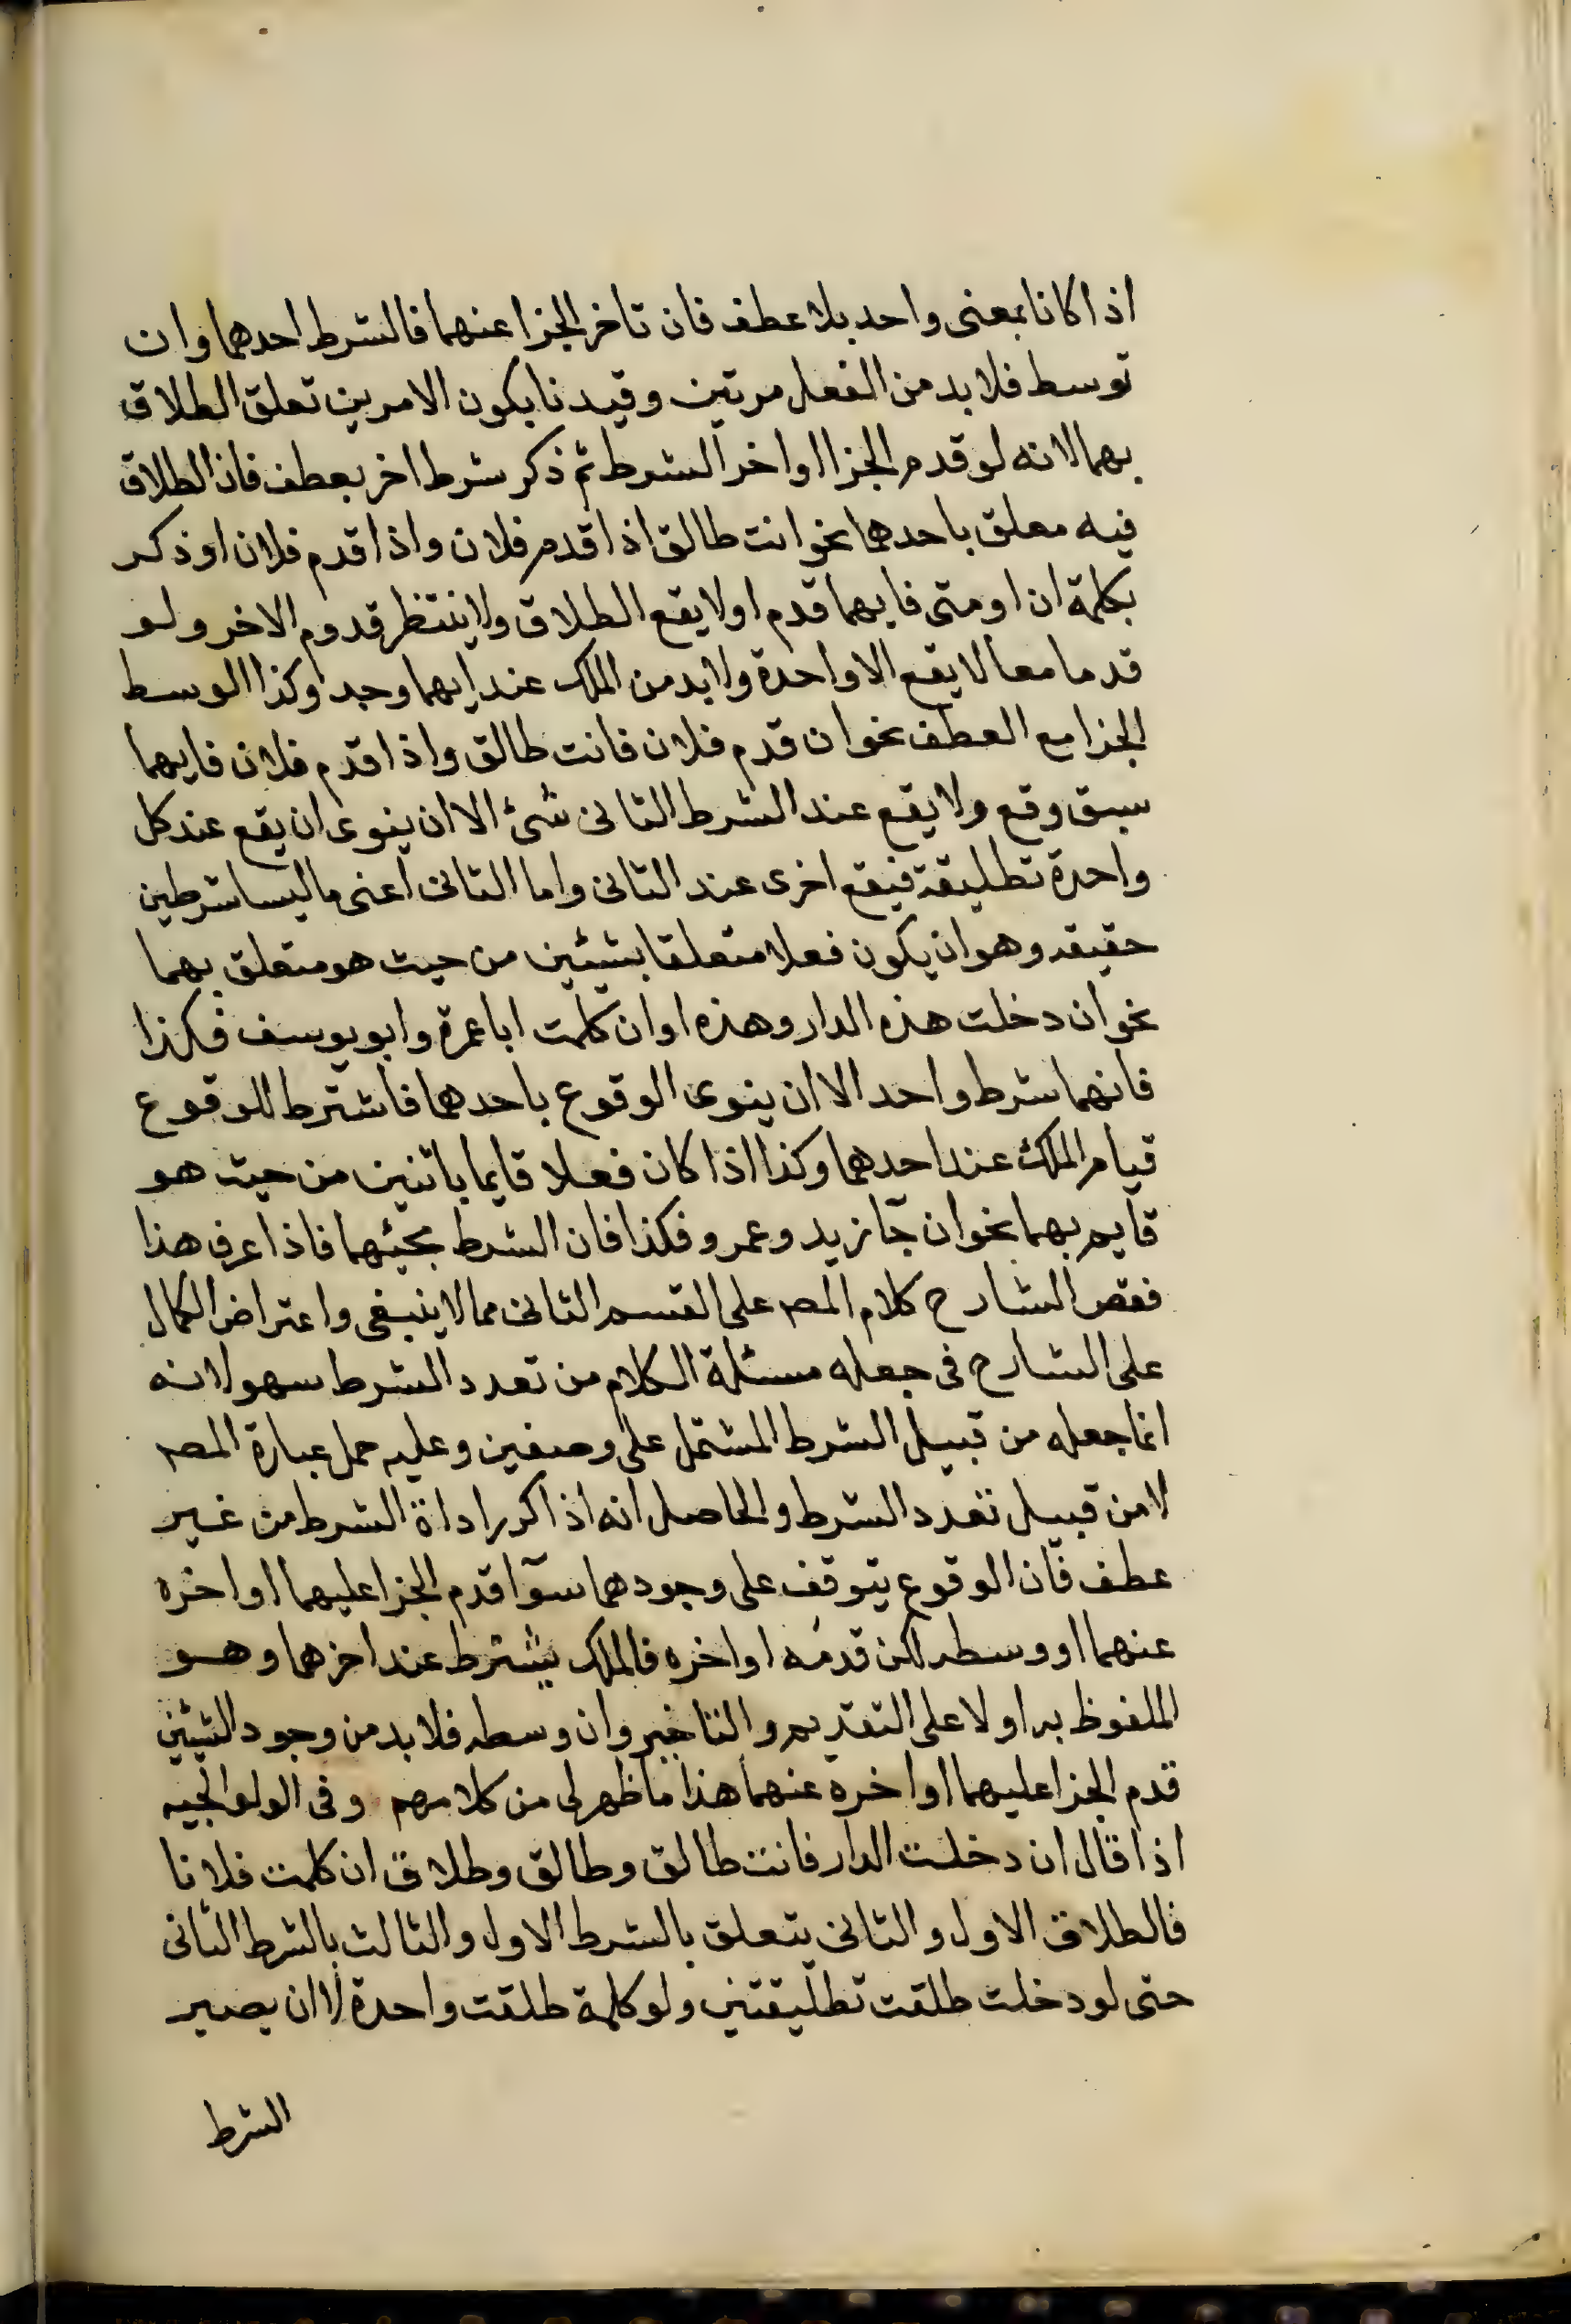 اذا كانا بمعنى واحد بلا عطف فان تاخر الجزا عنهما فالشرط احدهما وان
توسط فلا بد من الفعل مرتين وقيدنا بكون الامرين تعلق الطلاق
بهما لانه لو قدم الجزا او اخر الشرط ثم ذكر شرط اخر بعطف فان الطلاق
فيه معلق باحدهما نحو انت طالق اذا قدم فلان واذا قدم فلان او ذكر
بكلمة ان او متى فايهما قدم اولا يقع الطلاق ولا ينتظر قدوم الاخر ولو
قدما معا لا يقع الا واحدة ولا بد من الملك عند ايهما وجد وكذا لو وسط
الجزا مع العطف نحو ان قدم فلان فانت طالق واذا قدم فلان فايهما
سبق وقع ولا يقع عند الشرط الثانى شئ الا ان ينوى ان يقع عند كل
واحدة تطليقة فيقع اخرى عند الثانى واما الثانى اعنى ما ليسا شرطين
حقيقه وهو ان يكون فعلا متعلقا بشيئين من حيث هو متعلق بهما
نحو ان دخلت هذه الدار وهذه او ان كلمت ابا عمرة وابو يوسف فكذا
فانهما شرط واحد الا ان ينوى الوقوع باحدهما فاشترط للوقوع
قيام الملك عند احدهما وكذا اذا كان فعلا قايما باثنين من حيث هو
قايم بهما نحو ان جآ زيد وعمرو فكذا فان الشرط مجيئهما فاذا عرف هذا
فقصر الشارح كلام المصه على القسم الثانى مما لا ينبغى واعتراض الكمال
على الشارح فى جعله مسئلة الكلام من تعدد الشرط سهو لانه
انما جعله من قبيل الشرط المشتمل على وصفين وعليه حمل عبارة المصه
لا من قبيل تعدد الشرط والحاصل انه اذا كرر اداة الشرط من غير
عطف فان الوقوع يتوقف على وجودهما سوآ قدم الجزا عليهما او اخره
عنهما او وسطه لكن قدمه او اخره فالملك يشترط عند اخرهما وهو
الملفوظ به اولا على التقديم والتاخير وان وسطه فلا بد من وجود الشيئين
قدم الجزا عليهما او اخره عنهما هذا ما ظهر لى من كلامهم وفى الولوالجيه
اذا قال ان دخلت الدار فانت طالق وطالق وطلاق ان كلمت فلانا
فالطلاق الاول والثانى يتعلق بالشرط الاول والثالث بالشرط الثانى
حتى لو دخلت طلقت تطليقتين ولو كلمة طلقت واحدة لا ان يصير
الشرط